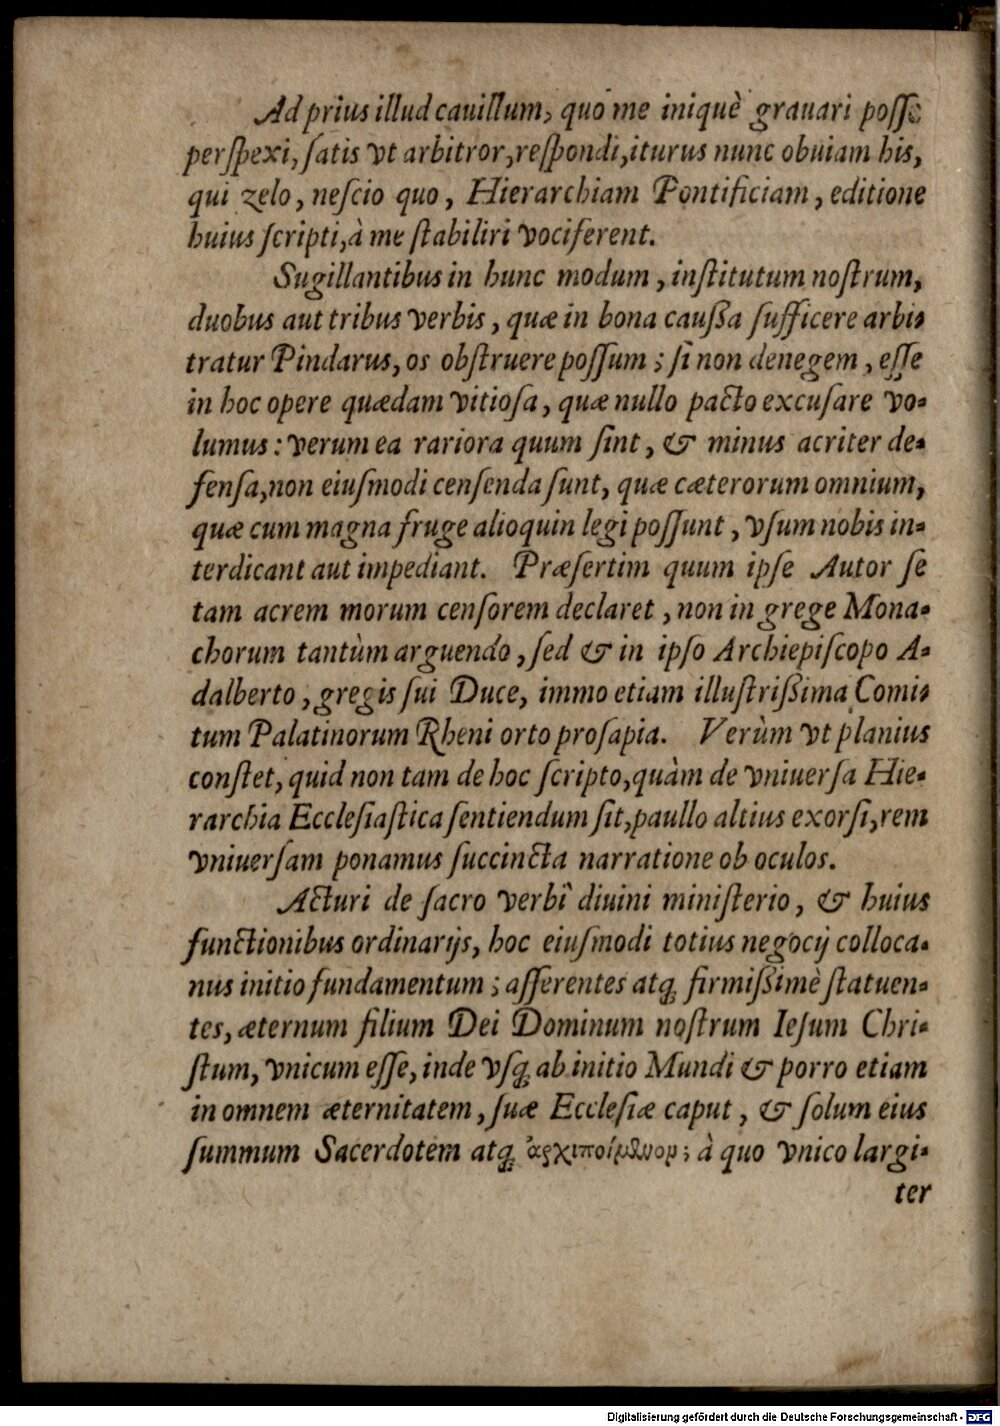 Ad prius illud cauillum, quo me iniquè grauari posse
perspexi, satis vt arbitror, respondi, iturus nunc obuiam his,
qui zelo, nescio quo, Hierarchiam Pontificiam, editione
huius scripti, à me stabiliri vociferent.
Sugillantibus in hunc modum, institutum nostrum,
duobus aut tribus verbis, quæ in bona caußa sufficere arbi-
tratur Pindarus, os obstruere possum; si non denegem, esse
in hoc opere quædam vitiosa, quæ nullo pacto excusare vo-
lumus: verum ea rariora quum sint, & minus acriter de-
fensa, non eiusmodi censenda sunt, quæ cæterorum omnium,
quæ cum magna fruge alioquin legi possunt, vsum nobis in-
terdicant aut impediant. Præsertim quum ipse Autor se
tam acrem morum censorem declaret, non in grege Mona-
chorum tantùm arguendo, sed & in ipso Archiepiscopo A-
dalberto, gregis sui Duce, immo etiam illustrißima Comi-
tum Palatinorum Rheni orto prosapia. Verùm vt planius
constet, quid non tam de hoc scripto, quàm de vniuersa Hie-
rarchia Ecclesiastica sentiendum sit, paullo altius exorsi, rem
vniuersam ponamus succincta narratione ob oculos.
Acturi de sacro verbi diuini ministerio, & huius
functionibus ordinarijs, hoc eiusmodi totius negocij colloca-
mus initio fundamentum; asserentes atq; firmißimè statuen-
tes, æternum filium Dei Dominum nostrum Iesum Chri-
stum, vnicum esse, inde vsq; ab initio Mundi & porro etiam
in omnem æternitatem, suæ Ecclesiæ caput, & solum eius
summum Sacerdotem atq; ἀρχιποίμενον; à quo vnico largi-
ter
Digitalisierung gefördert durch die Deutsche Forschungsgemeinschaft - DFG